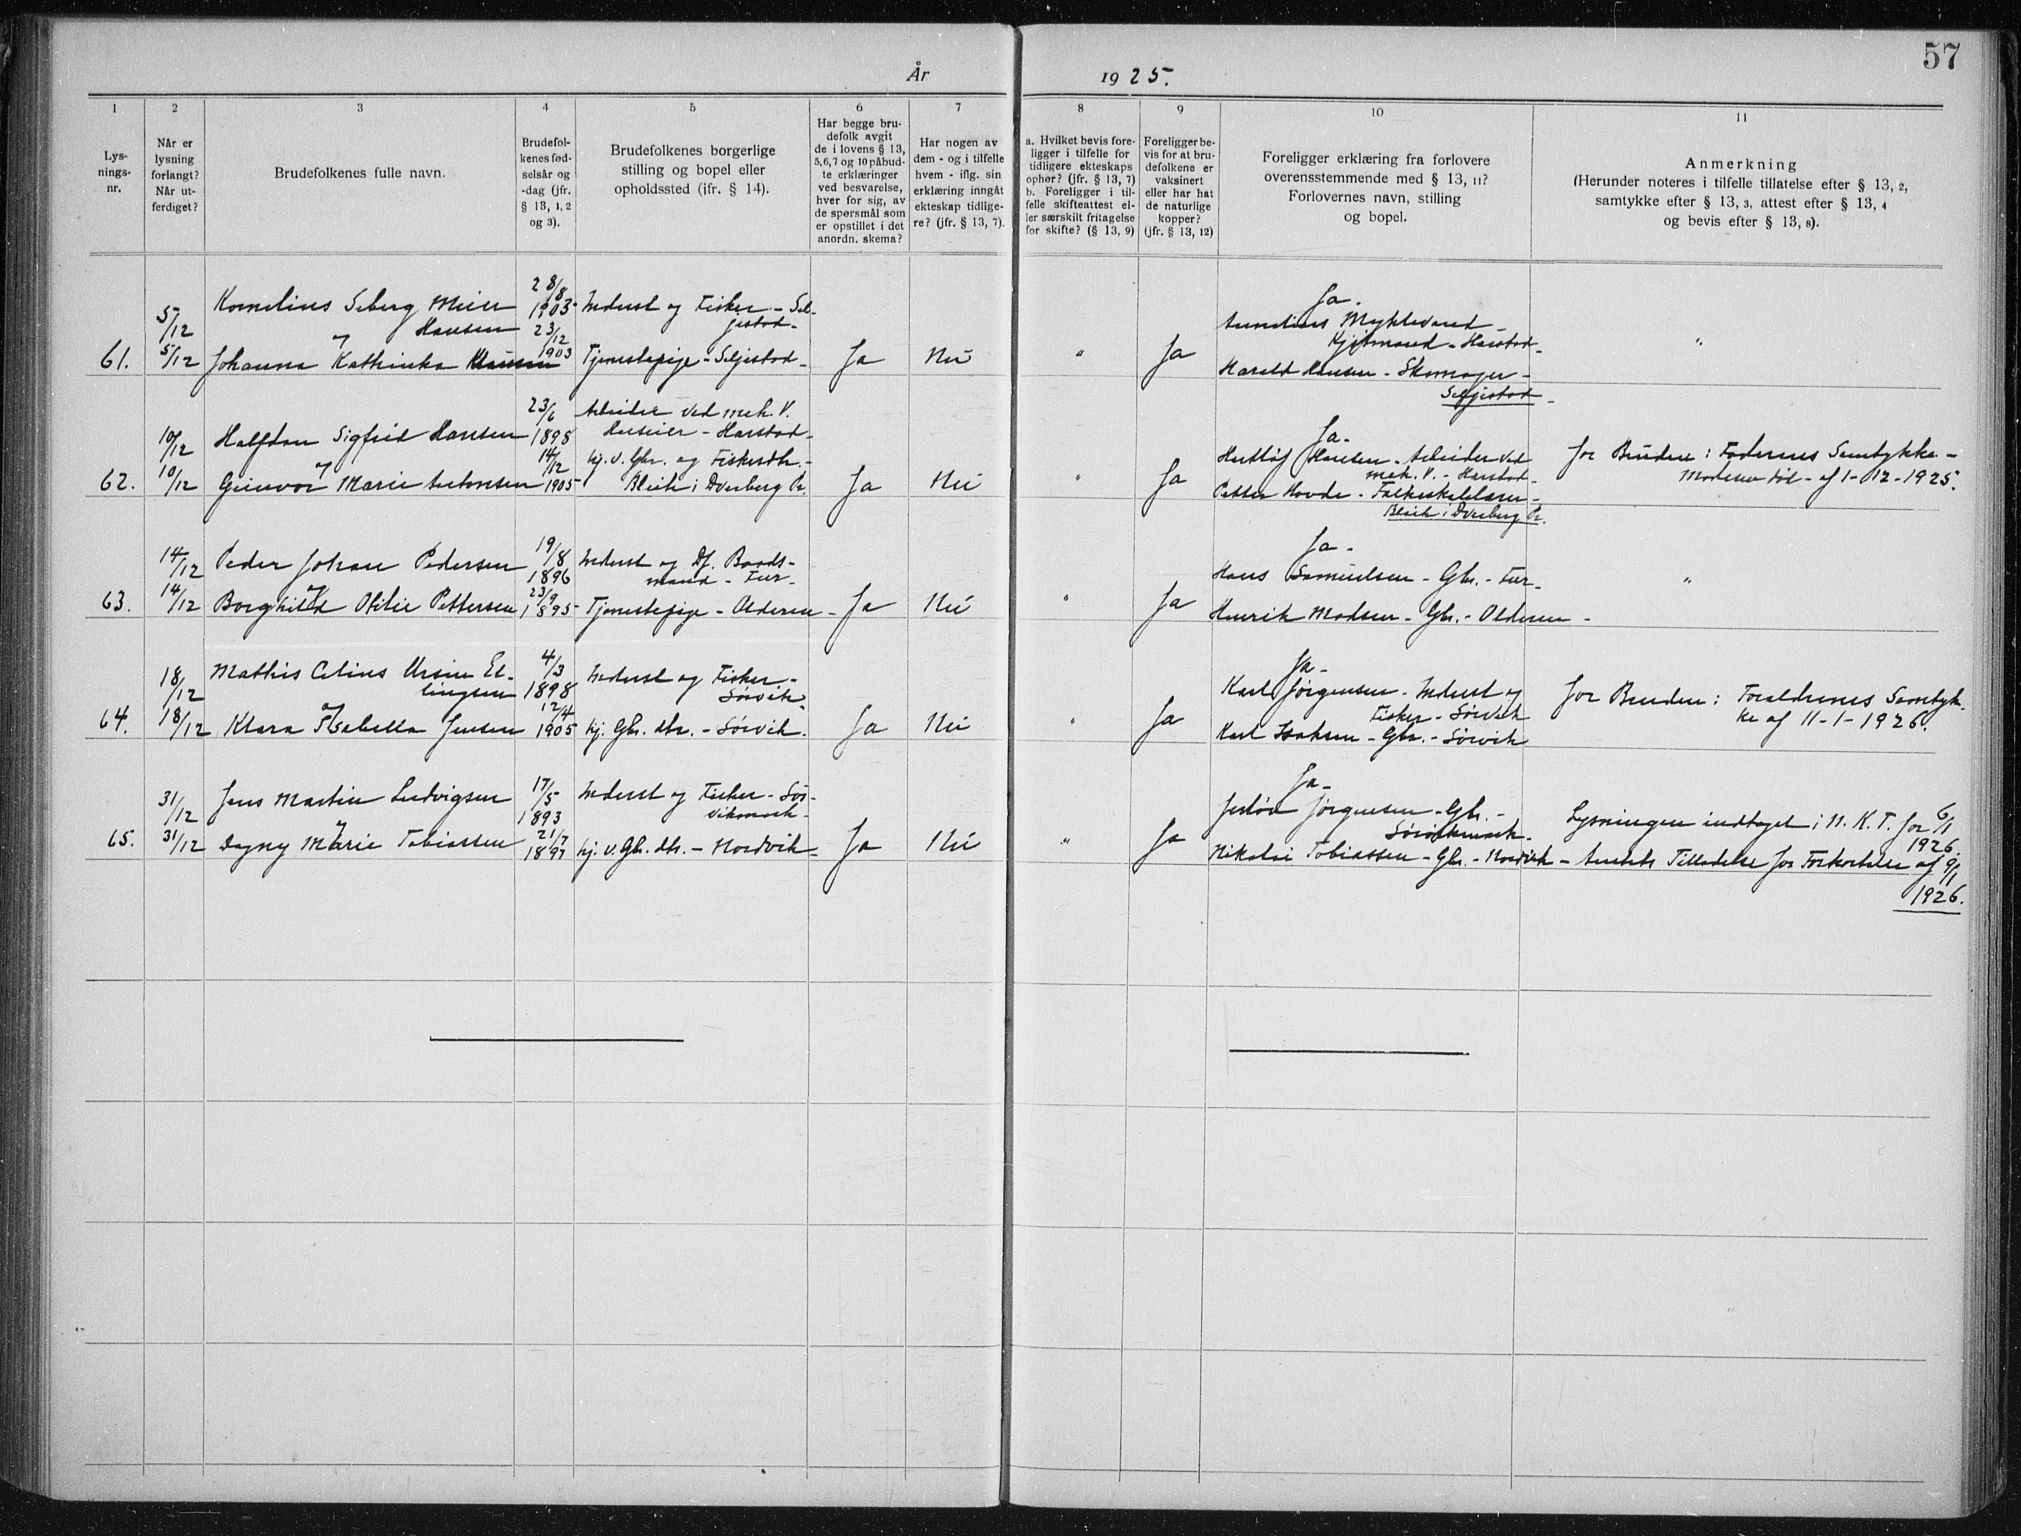 57
År 1925.
1 2 3 4 5 6 7 8 9 10 11
Lys-
nings-
nr.
Når er
lysning
forlangt?
Når ut-
ferdiget?
Brudefolkenes fulle navn.
Brudefol-
kenes fød-
selsår og
-dag (jfr.
§ 13, 1, 2
og 3).
Brudefolkenes borgerlige
stilling og bopel eller
opholdssted (jfr. § 14).
Har begge bru-
defolk avgit
de i lovens § 13,
5,6,7 og 10 påbud-
te erklæringer
ved besvarelse,
hver for sig, av
de spørsmål som
er opstillet i det
anordn. skema?
Har nogen av
dem - og i tilfelle
hvem - iflg. sin
erklæring inngåt
ekteskap tidlige-
re? (jfr. § 13, 7).
a. Hvilket bevis fore-
ligger i tilfelle for
tidligere ekteskaps
ophør? (jfr. § 13, 7)
b. Foreligger i til-
felle skifteattest el-
ler særskilt fritagelse
for skifte? (§ 13, 9)
Foreligger be-
vis for at bru-
defolkene er
vaksinert
eller har hat
de naturlige
kopper?
(jfr. § 13, 12)
Foreligger erklæring fra forlovere
overensstemmende med § 13, 11?
Forlovernes navn, stilling
og bopel.
Anmerkning
(Herunder noteres i tilfelle tillatelse efter § 13, 2,
samtykke efter § 13, 3, attest efter § 13, 4
og bevis efter § 13, 8).
61.
5/12
5/12
Kornelius Seberg Meier
og Hansen
Johanna Kathinka Hansen
28/8
1903
23/12
1903
Inderst og Fisker - Sel-
jestad -
Tjenestepige - Seljestad -
Ja
Nei
"
Ja
Ja -
Myklevand -
Kjøbmand - Harstad -
Harald Hansen - Skomager -
Seljestad -
"
62.
10/12
10/12
Halfdan Sigfred Hansen
og
Gunvor Marie Antonsen
23/6
1898
14/12
1905
Arbeider ved mek. V.
Huseier - Harstad -
hj. v. Gbr. og Fiskerdtr. -
Bleik i Dverberg Pr.
Ja
Nei
"
Ja
Ja -
Hansen - Arbeider ved
mek. V. - Harstad -
Petter Hovde - Folkeskolelærer -
Bleik i Dverberg Pr.
for Bruden: Faderens Samtykke -
Moderen død - af 1-12-1925.
63.
14/12
14/12
Peder Johan Pedersen
og
Borghild Otilie Pettersen
19/8
1896
23/9
1895
Inderst og Df. Baads-
mand -
Tjenestepige - Olderen -
Ja
Nei
"
Ja
Ja -
Hans Samuelsen - Gbr. -
Henrik Madsen - Gbr. - Olderen -
"
64.
18/12
18/12
Mathis Celius Ursin El-
lingsen
og
Klara Isabella Jensen
4/3
1898
12/4
1905
Inderst og Fisker -
Sørvik -
hj. Gbr. dtr. - Sørvik.
Ja
Nei
"
Ja
Ja -
Karl Jørgensen - Inderst og
Fisker - Sørvik
Karl Isaksen - Gbr. - Sørvik
for Bruden: Forældrenes Samtyk-
ke af 11-1-1926.
65.
31/12
31/12
Jens Martin Ludvigsen
og
Dagny Marie Tobiassen
17/5
1893
21/7
1897
Inderst og Fisker - Sør-
vikmark -
hj. v. Gbr. dtr. - Nordvik -
Ja
Nei
"
Ja
Ja -
Jørgensen - Gbr. -
Sørvikmark -
Nikolai Tobiassen - Gbr. - Nordvik -
Lysningen indtaget i N. K. T. for 6/1
1926.
Amtets Tilladelse for Forkortelse af 9/1
1926.